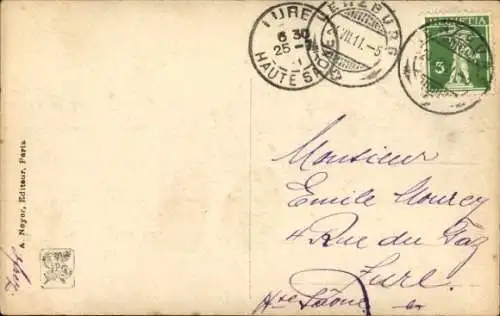 LURE
6 30
25 -
HAUTE SAONE
ENZBURG
VII.11.-5
HELVETIA
5
Monsieur
Emile Mourey
4 Rue du Gaz
Lure.
Hte Saône
A. Noyer, Editeur, Paris